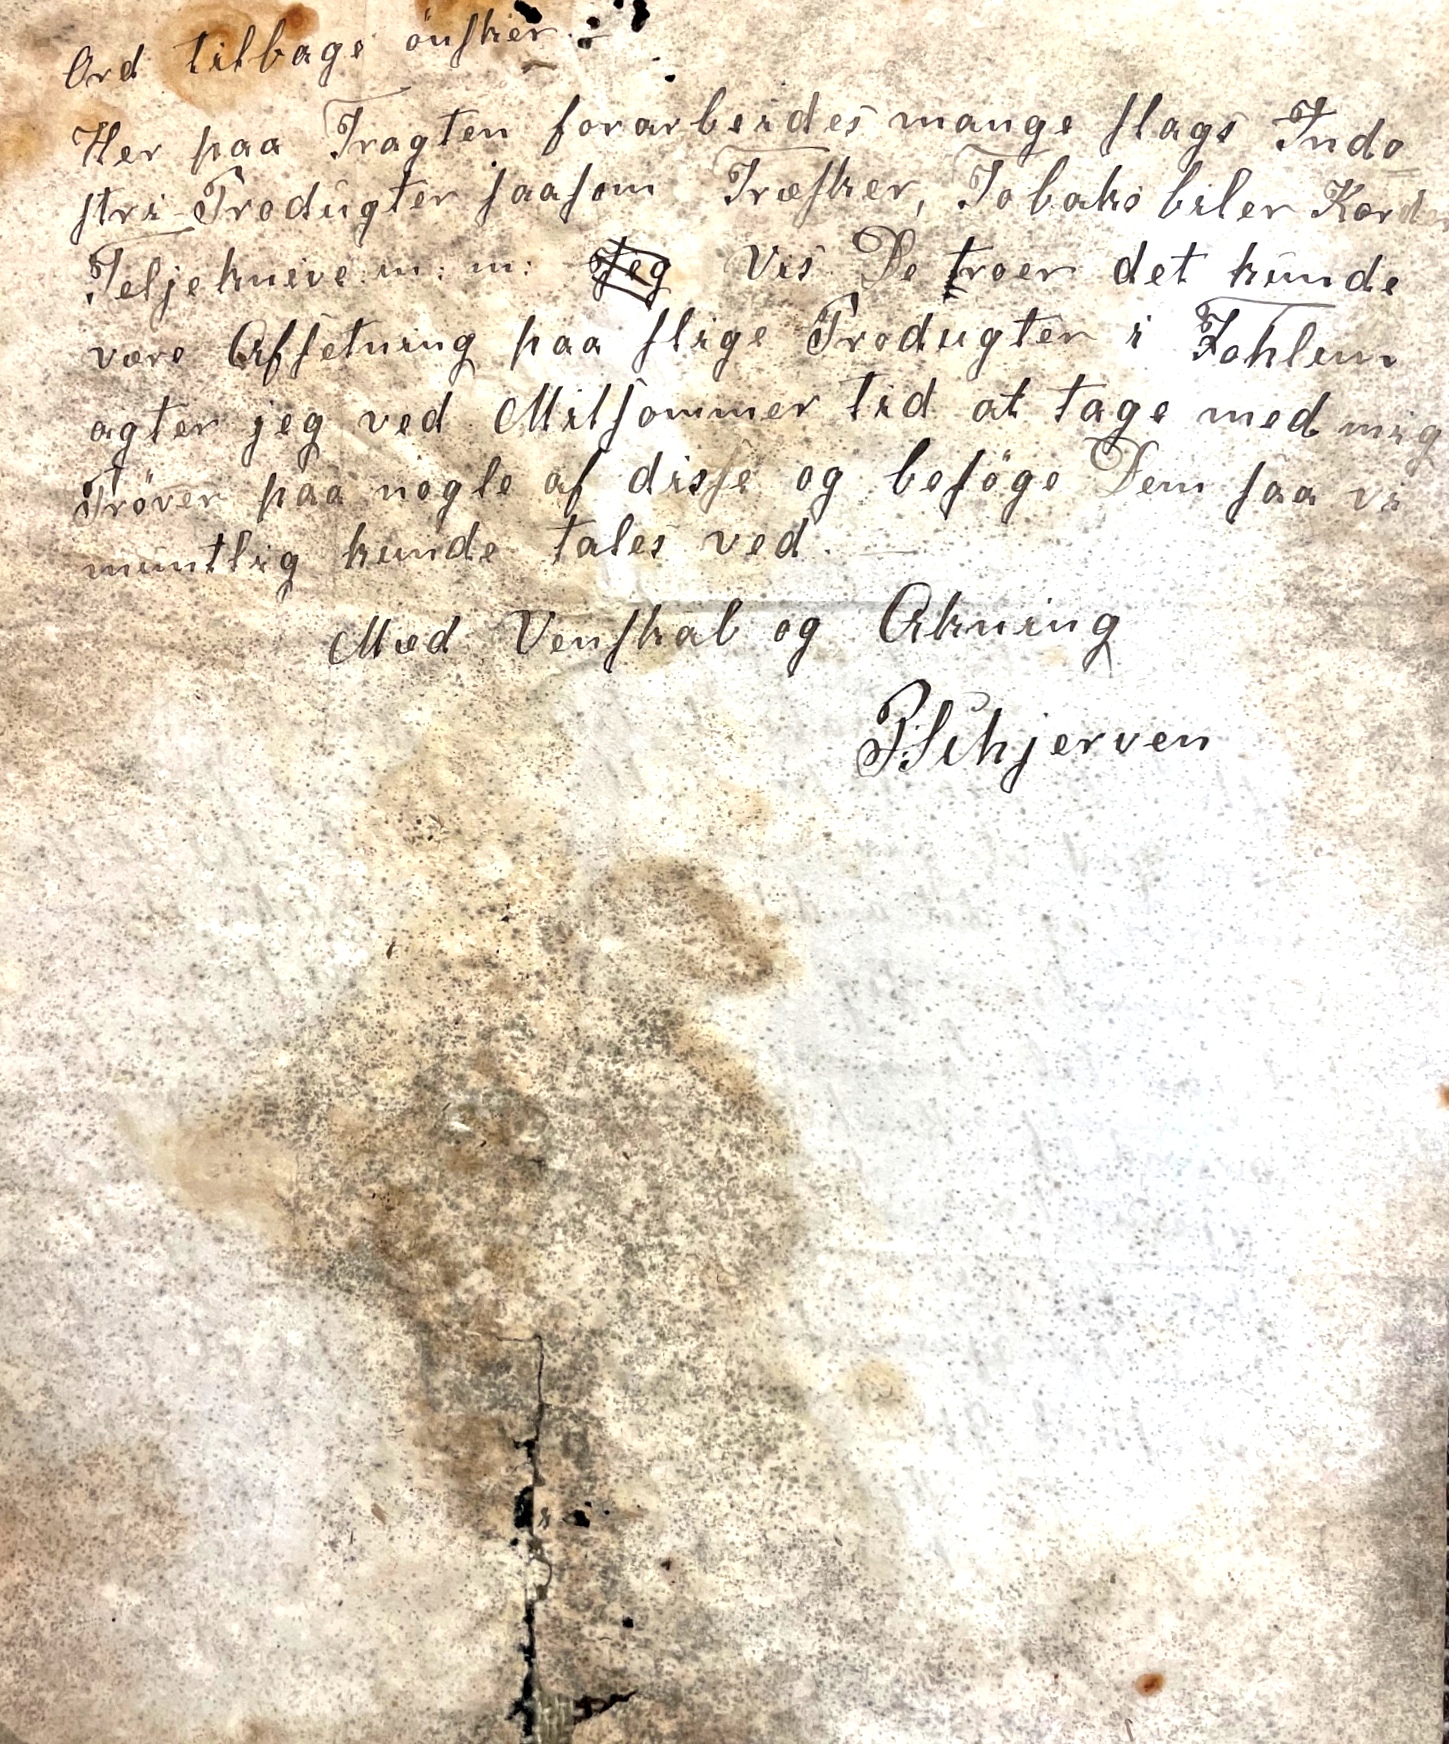 Ord tilbage önsker.
Her paa Tragten forarbeides mange slags Indo
stri-Produgter saasom Træsker, Tobaks biler Kord
Teljeknive m: m: Jeg Vis De troer det kunde
være Afsetning paa slige Produgter i Foklum
agter jeg ved Mitsommer tid at tage med mig
Pröver paa nogle af disse og besöge Dem saa vi
muntlig kunde tales ved.
Med Venskab og Akning
P. Schjerven